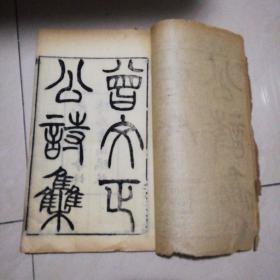 曾文正
公詩集